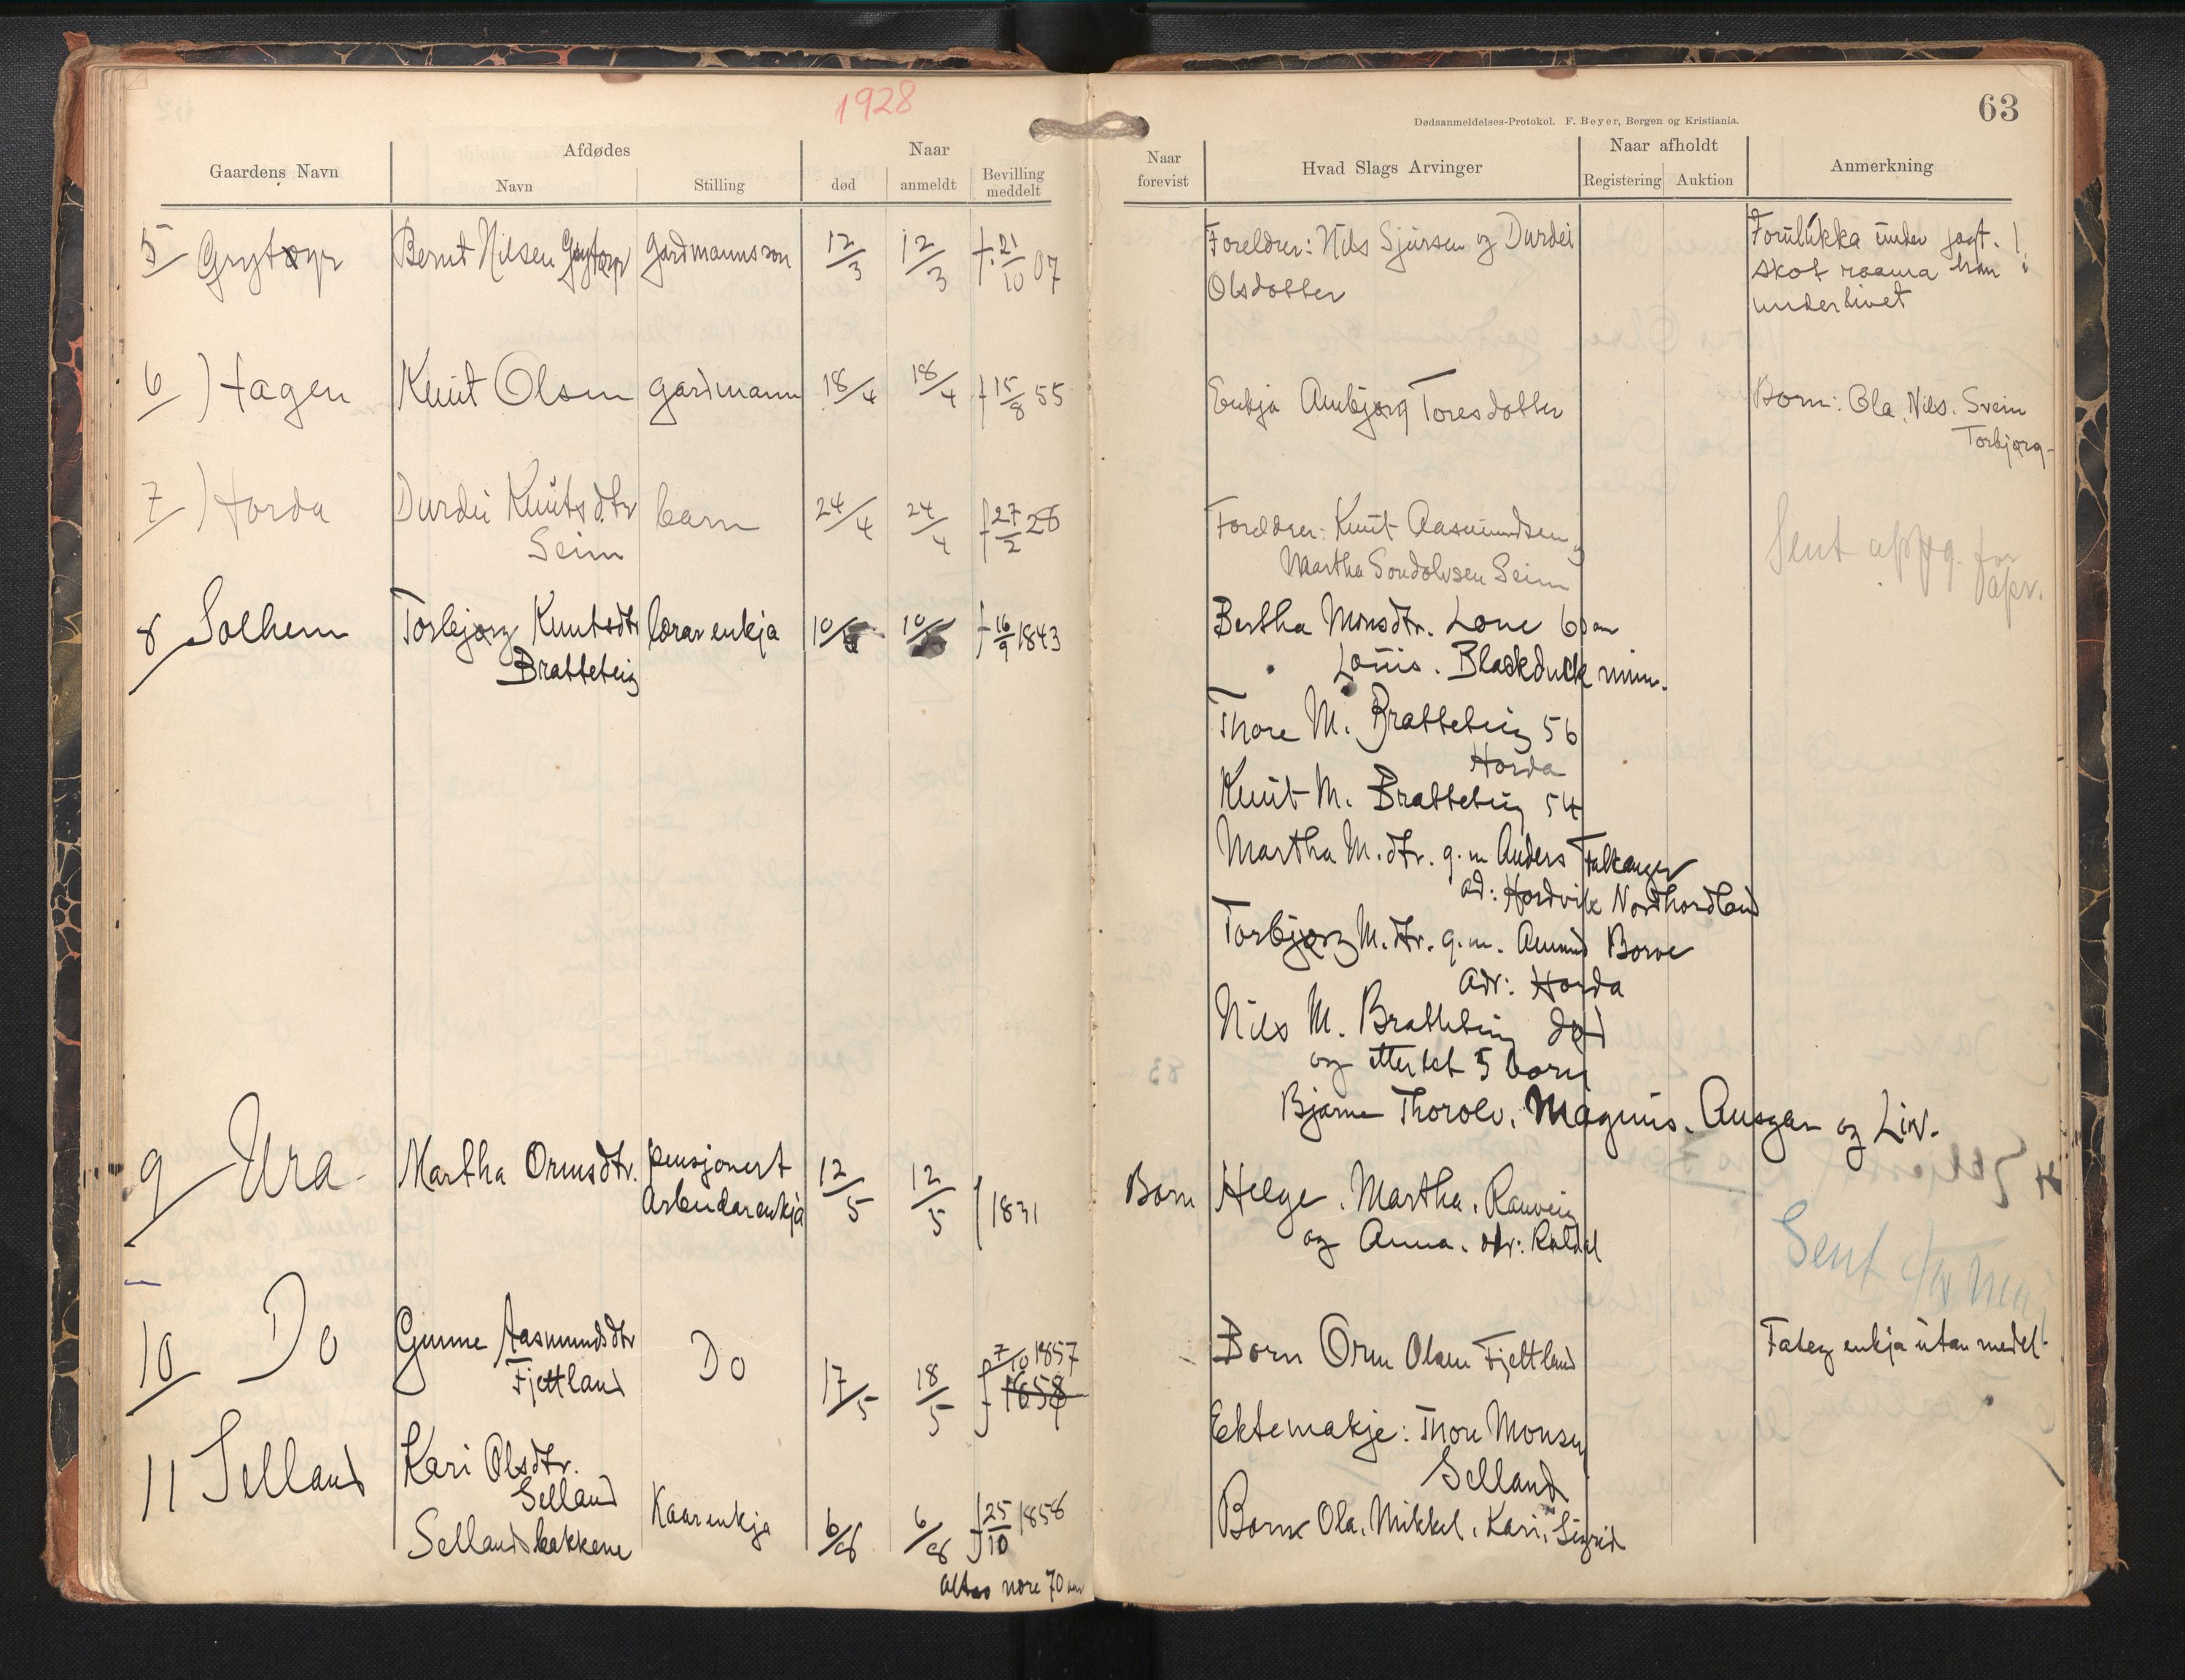 1928
63
Dødsanmeldelses-Protokol. F. Beyer, Bergen og Kristiania.
Gaardens Navn
Afdødes
Navn
Stilling
Naar
død
anmeldt
Bevilling meddelt
Naar forevist
Hvad Slags Arvinger
Naar afholdt
Registering
Auktion
Anmerkning
5 Grytøyr Bernt Nilsen Grytøyr gardmannsson 12/3 12/3 f. 21/10 07 Foreldrer: Nils Sjursen og Durdei Forulukka under jagt. !
Olsdotter skot raama han i
underlivet
6 Hagen Knut Olsen gardmann 18/4 18/4 f 15/8 55 Enkja Ambjørg Toresdotter Born: Ola, Nils. Svein
Torbjørg
7 Horda Durdei Knutsdtr barn 24/4 24/4 f 27/2 28 Foreldrer: Knut Aasmundsen og Sent
Seim Martha Sondolvsen Seim
8 Solheim Torbjørg Knutsdtr lærarenkja 10/5 10/5 f 16/9 1843 Bertha Monsdtr. Lone 60 aar
Bratteteig Louis. Blackduck minn.
Thore M. Bratteteig 56
Horda
Knut M. Bratteteig 54
Martha M.dtr. g. m Anders Falkanger
ad: Hordvik Nordhordland
Torbjørg M.dtr. g. m. Amund Borve
Adr: Horda
Nils M. Bratteteig død
og etterlet 5 born
Bjarne Thorolv, Magnus. Ansgar og Liv.
9 Ura Martha Ormsdtr. pensjonert 12/5 12/5 f 1831 Born Helge, Martha, Ranveig
Arbeidarenkja og Anna. adr: Røldal
Sent
10 Do Gunne Aasmundsdtr Do 17/5 18/5 f 7/10 1857 Born Orm Olsen Fjetland Fateg enkja utan medel.
Fjetland 1858
11 Selland Kari Olsdtr. Kaarenkja 6/8 6/8 f 25/10 1858 Ektemakje: Thore Monsen
Selland Selland
Sellandsbakkene Born Ola, Mikkel, Kari, Sigrid
altso nære 70 aar